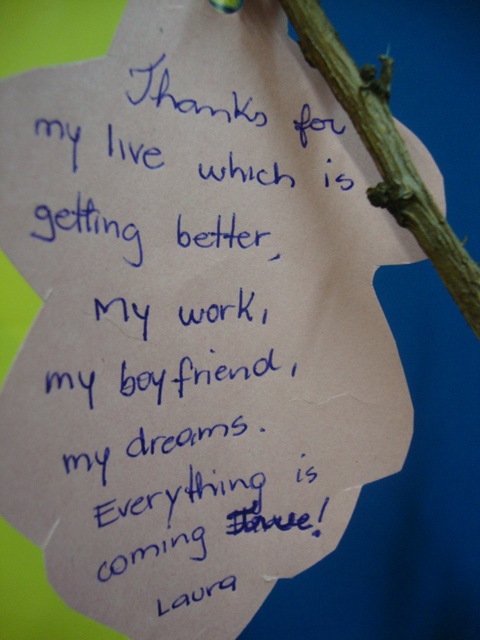 Thanks for
my live which is
getting better,
My work,
my boyfriend,
my dreams.
Everything is
coming true!
Laura